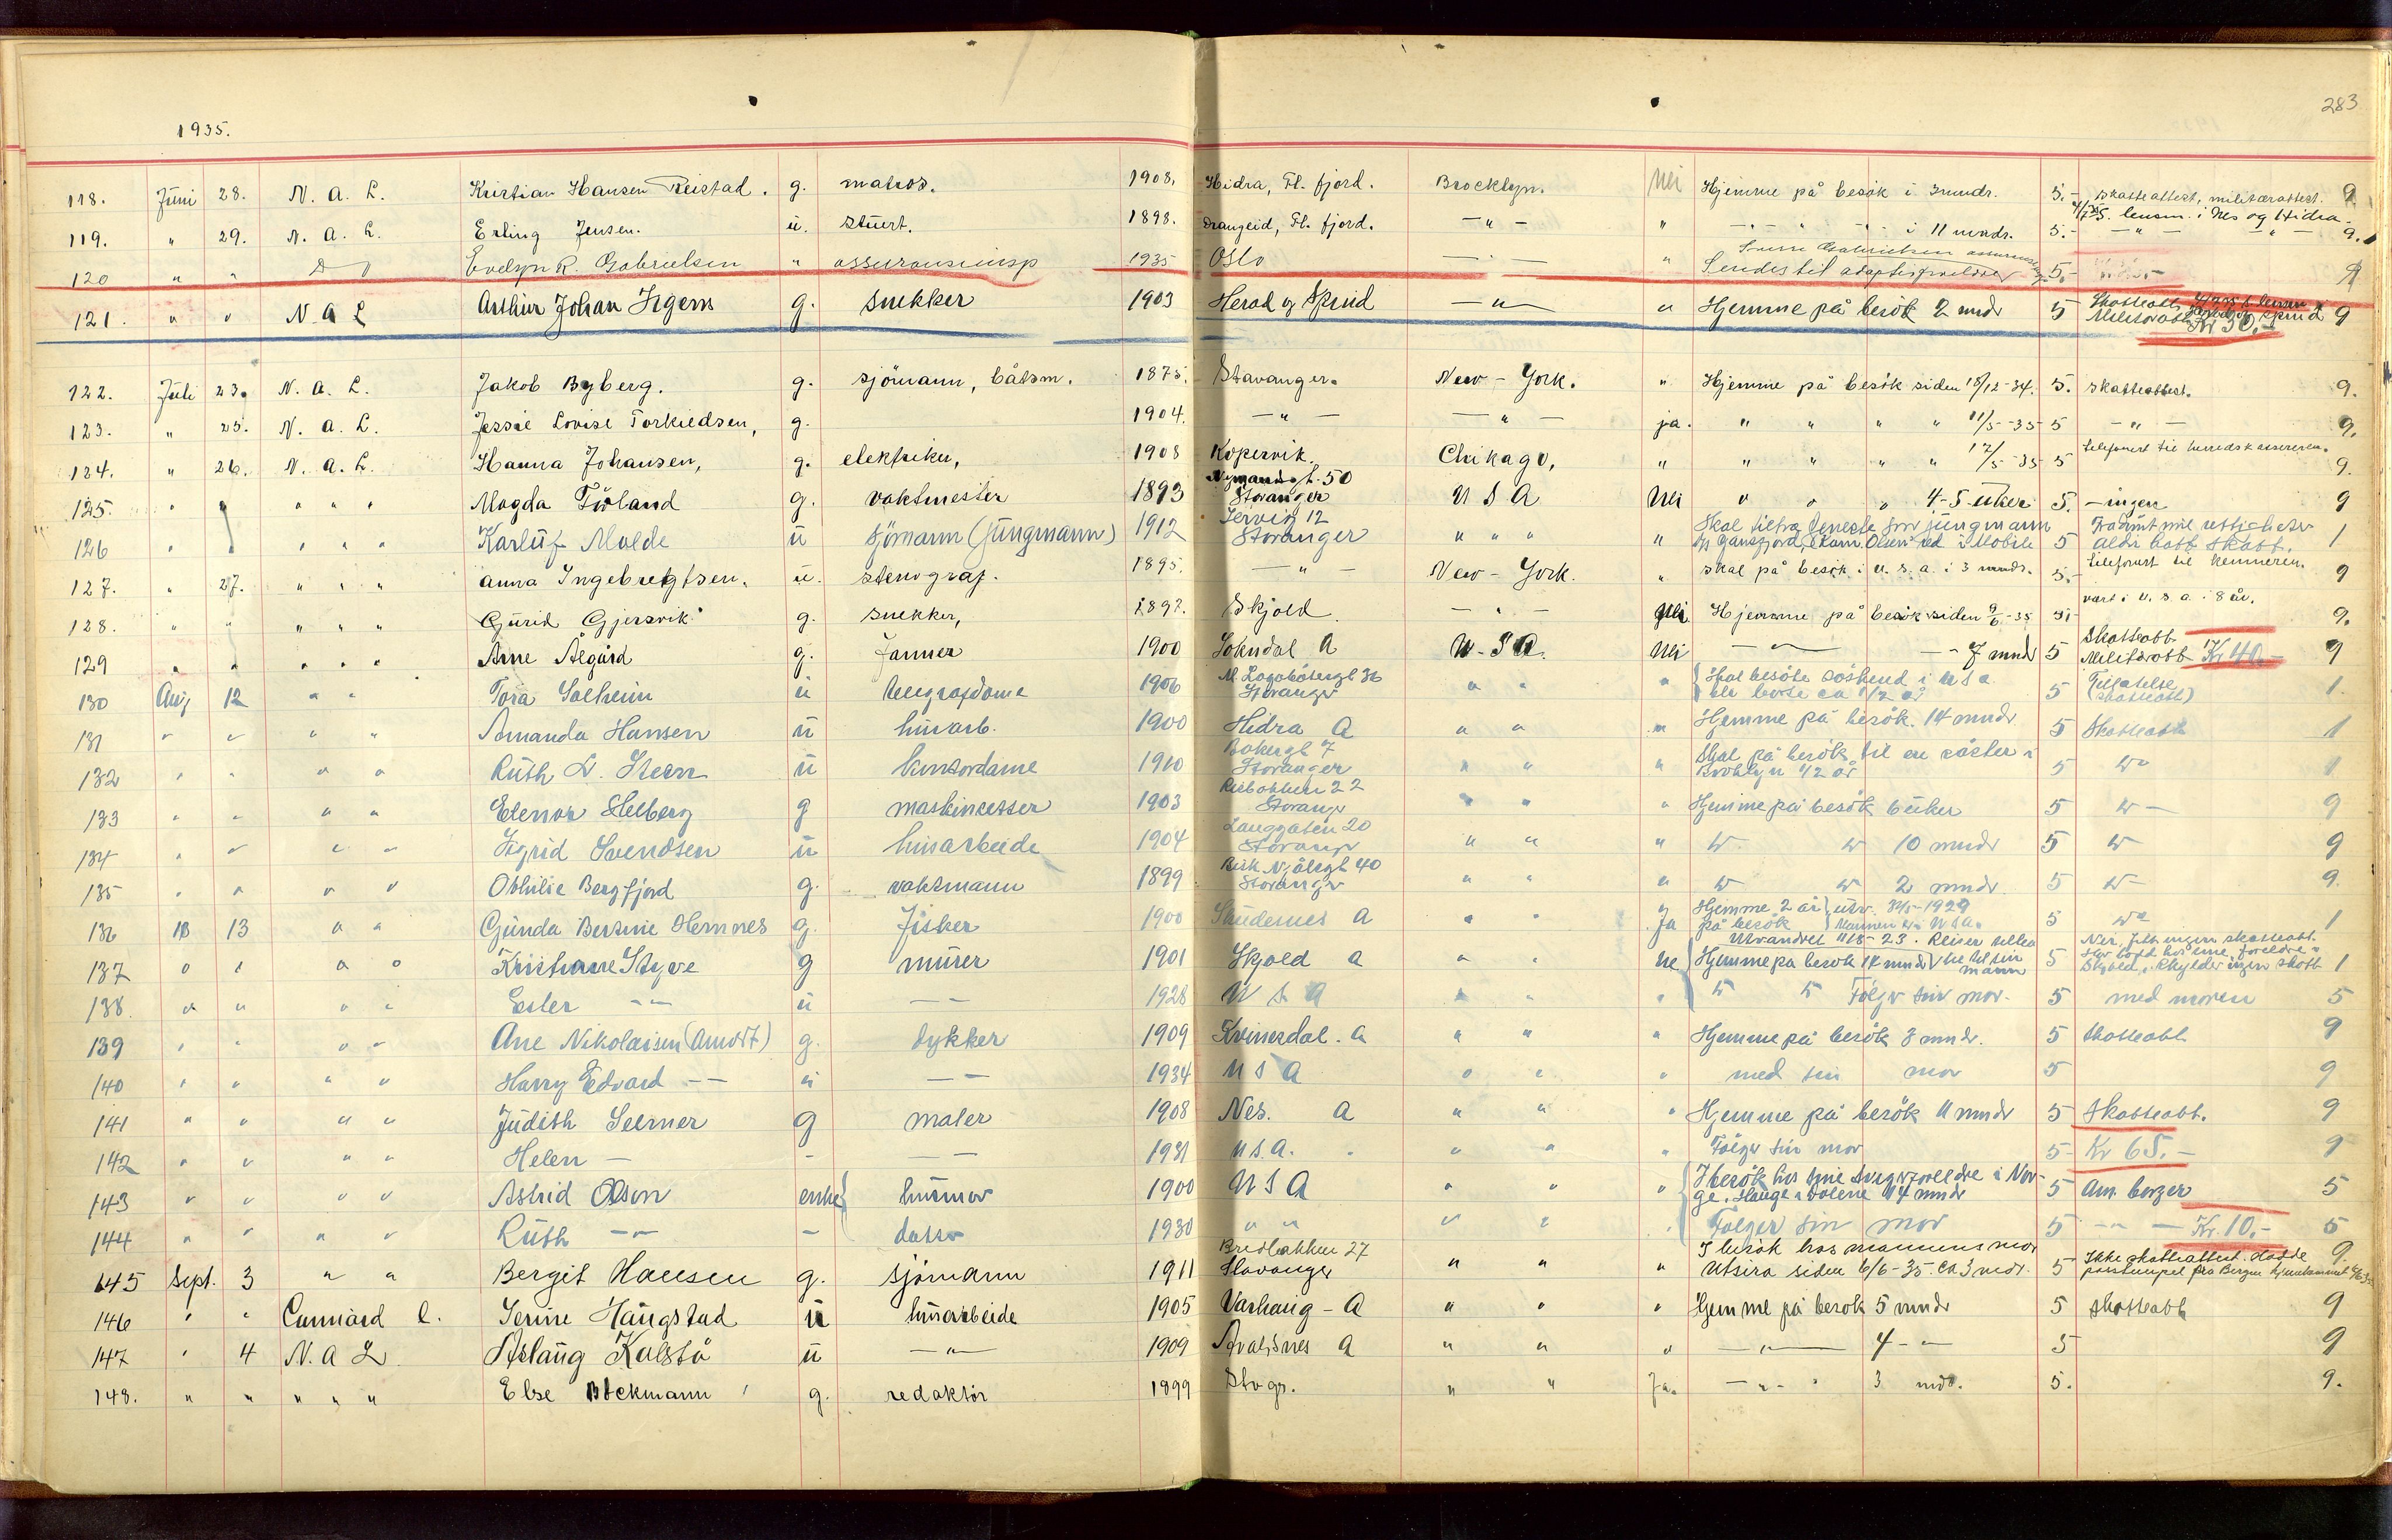 283
1935.
118. Juni 28. N. A. L. Kristian Hansen Reistad. g. matros. 1908. Hidra, Fl. fjord. Brocklyn. Nei Hjemme på besök i 3 mndr. 5.- Skatteattest, militærattest. 9
119. " 29. N. A. L. Erling Jensen. ü. stuert. 1898. Drangeid, Fl. fjord. -"- " i 11 mndr. 5.- lensm. i Nes og Hidra. 9.
120 " " Evelyn R. Gabrielsen " assuranseinsp 1935 Oslo -"- " Sendes til adoptivforeldre 5.-
121. " " N. A L Arthur Johan Segem g. Snekker 1903 Herad og Spind -"- " Hjemme på besök 2 mndr 5 Skatteatt. Militæratt. Kr 30.- 9
122. Juli 23. N. A. L. Jakob Byberg. g. sjömann, båtsm. 1875. Stavanger. New-York. " Hjemme på besök siden 18/12-34. 5. skatteattest. 9.
123. " 25. N. A. L. Jessie Lovise Torkildsen, g. 1904. -"- -"- ja. " " " " 11/5-35 5 -"- 9.
124. " 26. N. A. L. Hanna Johansen, g. elektriker, 1908 Kopervik. Chikago, " " " " " 12/5-35 5 telefonert til herredskassereren. 9.
125. " " " " " Magda Törland g. vaktmester 1893 Nymansgt. 50 Stavanger U S A Nei " " " 4-5 uker 5. - ingen 9
126 " " " " " Karluf Molde ü sjömann (jungmann) 1912 Jervig 12 Stavanger " " " " Skal tiltre tjeneste som jungmann 5 aldri hatt skatt. 1
127. " 27. " " " Anna Ingebregtsen. ü. stenograf. 1895. -"- New-York. " skal på besök i U. S. A. i 3 mndr. 5.- telefonert til kemneren. 9
128. " " " " " Gurid Gjersvik g. snekker, 1892. Skjold -"- Nei Hjemme på besök siden 9/6-35 5.- vært i U. S. A. i 8 år. 9.
129 " " " " " Arne Ålgård g. Farmer 1900 Sokndal A U.S.A. Nei -"- -"- 7 mndr 5 Skatteatt Militæratt Kr 40.- 9
130 Aug 12 " " Tora Solheim ü telegrafdame 1906 Stavanger " " " Skal besöke söskend i U S A 5 (skatteatt) 1.
131 " " " " Amanda Hansen ü husarb. 1900 Hidra A " " " Hjemme på besök. 14 mndr 5 Skatteatt 1
132 " " " " Ruth N. Steen ü kontordame 1910 Bakergt 7 Stavanger " " " Skal på besök til en söster i Brooklyn 1/2 år 5 " 1
133 " " " " Elenor Helberg g maskinsetter 1903 Stavanger " " " Hjemme på besök 6 uker 5 " 9
134 " " " " Sigrid Svendsen ü husarbeide 1904 Langgaten 20 Stavanger " " " " " 10 mndr 5 " 9
135 " " " " Othilie Bergfjord g. vaktmann 1899 Bisk. Njålsgt 40 Stavanger " " " " " 2 mndr. 5 " 9.
136 " 13 " " Gunda Bertine Hemnes g. fisker 1900 Skudenes A " " Ja Hjemme 2 år på besök Mannen er i U S A. 5 " 1
137 " " " " Kristiane Styve g murer 1901 Skjold A " " ne Utvandret 11/8-23. Reiser tilbake til sin mann Hjemme på besök 14 mndr 5 Nei, 1
138 " " " " Ester -"- ü -- 1928 U S A " " " " " Fölger sin mor. 5 med moren 5
139 " " " " Ane Nikolaisen (Arnodt) g. dykker 1909 Kvinesdal. A " " " Hjemme på besök 3 mndr. 5 Skatteatt 9
140 " " " " Harry Edvard -- ü -- 1934 U S A " " " med sin mor 5 9
141 " " " " Judith Seerner g maler 1908 Nes. A " " " Hjemme på besök 11 mndr 5 Skatteatt. 9
142 " " " " Helen - - -- 1931 U.S.A. " " " Fölger sin mor 5 Kr 65.- 9
143 " " " " Astrid Olson enke husmor 1900 U S A " " " I besök hos sine svigerforeldre i Norge. Hauge i Dalene 14 mndr 5 Am. borger 5
144 " " " " Ruth -- - datter 1930 " " " " " Fölger sin mor 5 -"- Kr. 10.- 5
145 Sept. 3 " " Bergit Hansen g. sjömann 1911 Bredbakken 27 Stavanger " " " I besök hos mannens mor Utsira siden 6/6-35. Ca 3 mdr. 5 Ikke skatteattest. Hadde passtempel fra Bergen 9
146 " " Cunnard l. Serine Haugstad ü husarbeide 1905 Varhaug - A " " " Hjemme på besök 5 mndr 5 Skatteatt 9
147 " 4 N. A L. Aslaug Kalstö ü -"- 1909 Avalsnes A " " " -"- 4 -"- 5 9
148. " " " " " Else Böckmann g. redaktör 1899 Stvgr. " " Ja. -"- 3 mdr. 5. 9.